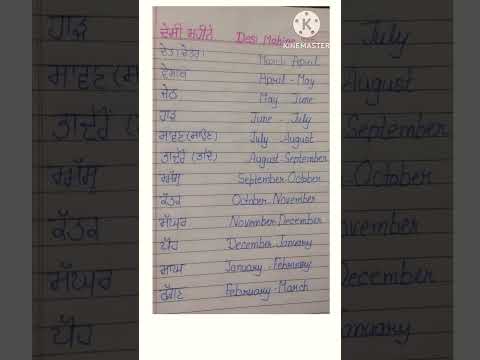 ਦੇਸੀ ਮਹੀਨੇ Desi Mahine
KINEMASTER
ਚੇਤ (ਚੇਤਰ) March April
ਵੈਸਾਖ April - May
ਜੇਠ May June
ਹਾੜ June - July
ਸਾਵਣ (ਸਾਉਣ) July August
ਭਾਦੋਂ (ਭਾਦੋ) August September
ਅੱਸੂ September October
ਕੱਤਕ October November
ਮੱਘਰ November December
ਪੋਹ December January
ਮਾਘ January - February
ਫੱਗਣ February - March
ਹਾੜ
ਸਾਵਣ (ਸਾ
ਭਾਦੋਂ (
ਅੱਸੂ
ਕੱਤਕ
ਮੱਘਰ
ਪੋਹ
July
August
September
October
vember
Decembe
anuary